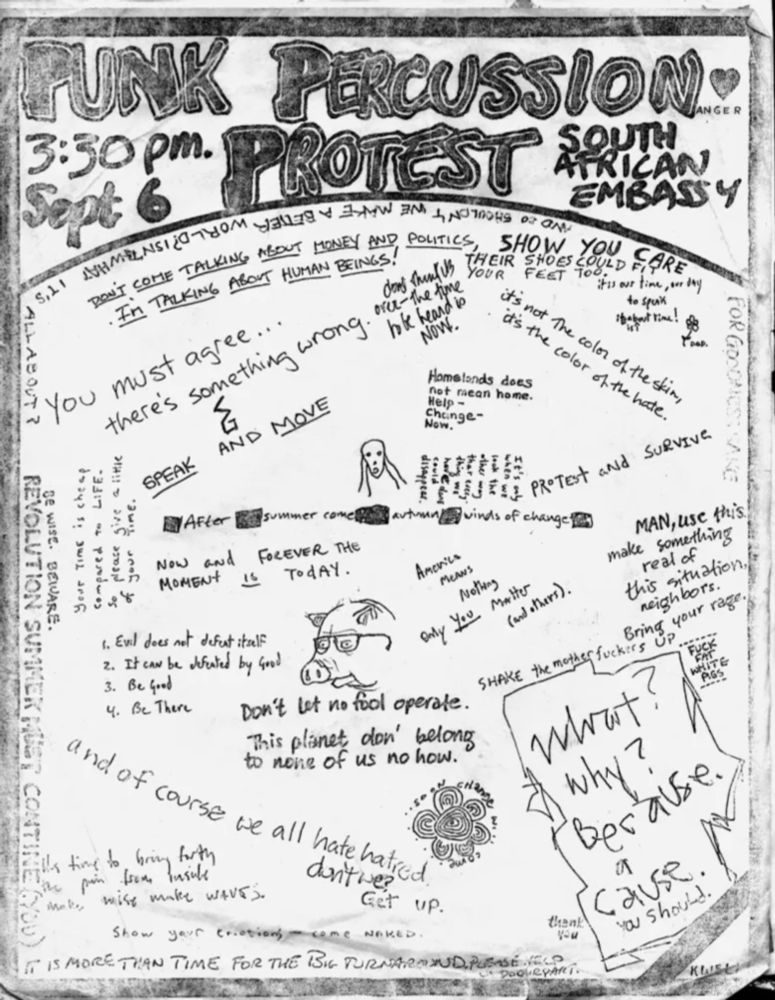 PUNK PERCUSSION
ANGER
3:30 pm. PROTEST SOUTH
AFRICAN
Sept 6 EMBASSY
AND SO SHOULDN'T WE MAKE A BETTER WORLD? ISN'T WHAT IT'S
ALL ABOUT?
DON'T COME TALKING ABOUT MONEY AND POLITICS,
I'm TALKING ABOUT HUMAN BEINGS!
SHOW YOU CARE
THEIR SHOES COULD FIT
YOUR FEET TOO.
it is our time, our day
to speak
its about time!
don't think it's
over - the time
to be heard is
NOW.
it's not the color of the skin,
it's the color of the hate.
FOR GOODNESS SAKE
You must agree...
there's something wrong.
Homelands does
not mean home.
Help -
Change -
Now.
SPEAK AND MOVE
It's not
when we
look the
other way
that every
thing we
could
have done
disappears.
PROTEST and SURVIVE
Your Time is cheap
compared to LIFE.
So please give a little
of your TIME.
BE WISE. BEWARE.
REVOLUTION SUMMER MUST CONTINE (YOU)
After summer comes autumn winds of change
MAN, use this.
make something
real of
this situation,
neighbors.
Bring your rage.
Now and FOREVER THE
MOMENT IS TODAY.
America
means
Nothing
Only You Matter
(and others).
1. Evil does not defeat itself
2. It can be defeated by Good
3. Be Good
4. Be There
SHAKE the motherfuckers UP
FUCK
FAT
WHITE
PIGS
Don't let no fool operate.
This planet don' belong
to none of us no how.
What?
Why?
Because.
a
Cause.
You should.
and of course we all hate hatred
don't we?
Get up.
so on change
come
its time to bring forth
the pain from inside
make noise make WAVES.
Show your emotions - come NAKED.
thank
you
IT IS MORE THAN TIME FOR THE BIG TURNAROUND, PLEASE HELP
DO YOUR PART.